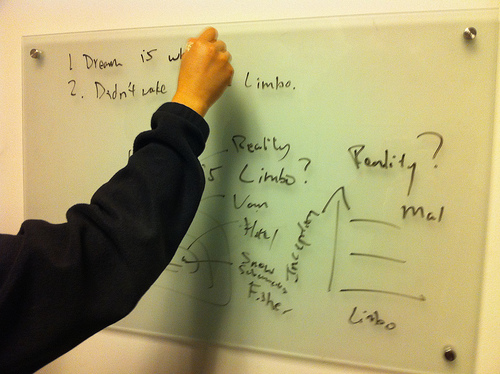 1 Dream is
2. Didn't wake Limbo.
Reality
is Limbo?
Van
Hotel
Snow
Fisher
Inception
Reality?
Mal
Limbo